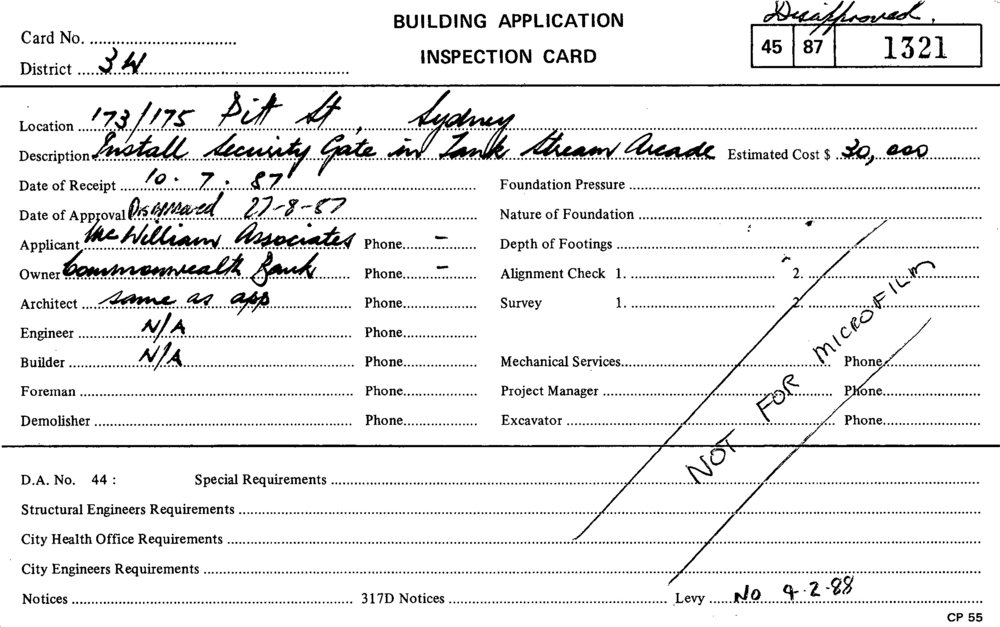 Disapproved.
BUILDING APPLICATION
INSPECTION CARD
Card No.
45 87 1321
District 3W
Location 173/175 Pitt St, Sydney
Description Install Security Gate in Tank Stream Arcade Estimated Cost $ 30,000
Date of Receipt 10. 7. 87 Foundation Pressure
Date of Approval Disapproved 27-8-87 Nature of Foundation
Applicant McWilliam Associates Phone – Depth of Footings
Owner Commonwealth Bank Phone – Alignment Check 1. 2.
Architect same as app Phone Survey 1. 2.
Engineer N/A Phone
Builder N/A Phone Mechanical Services Phone
Foreman Phone Project Manager Phone
Demolisher Phone Excavator Phone
NOT FOR MICROFILM
D.A. No. 44 : Special Requirements
Structural Engineers Requirements
City Health Office Requirements
City Engineers Requirements
Notices 317D Notices Levy No 4-2-88
CP 55